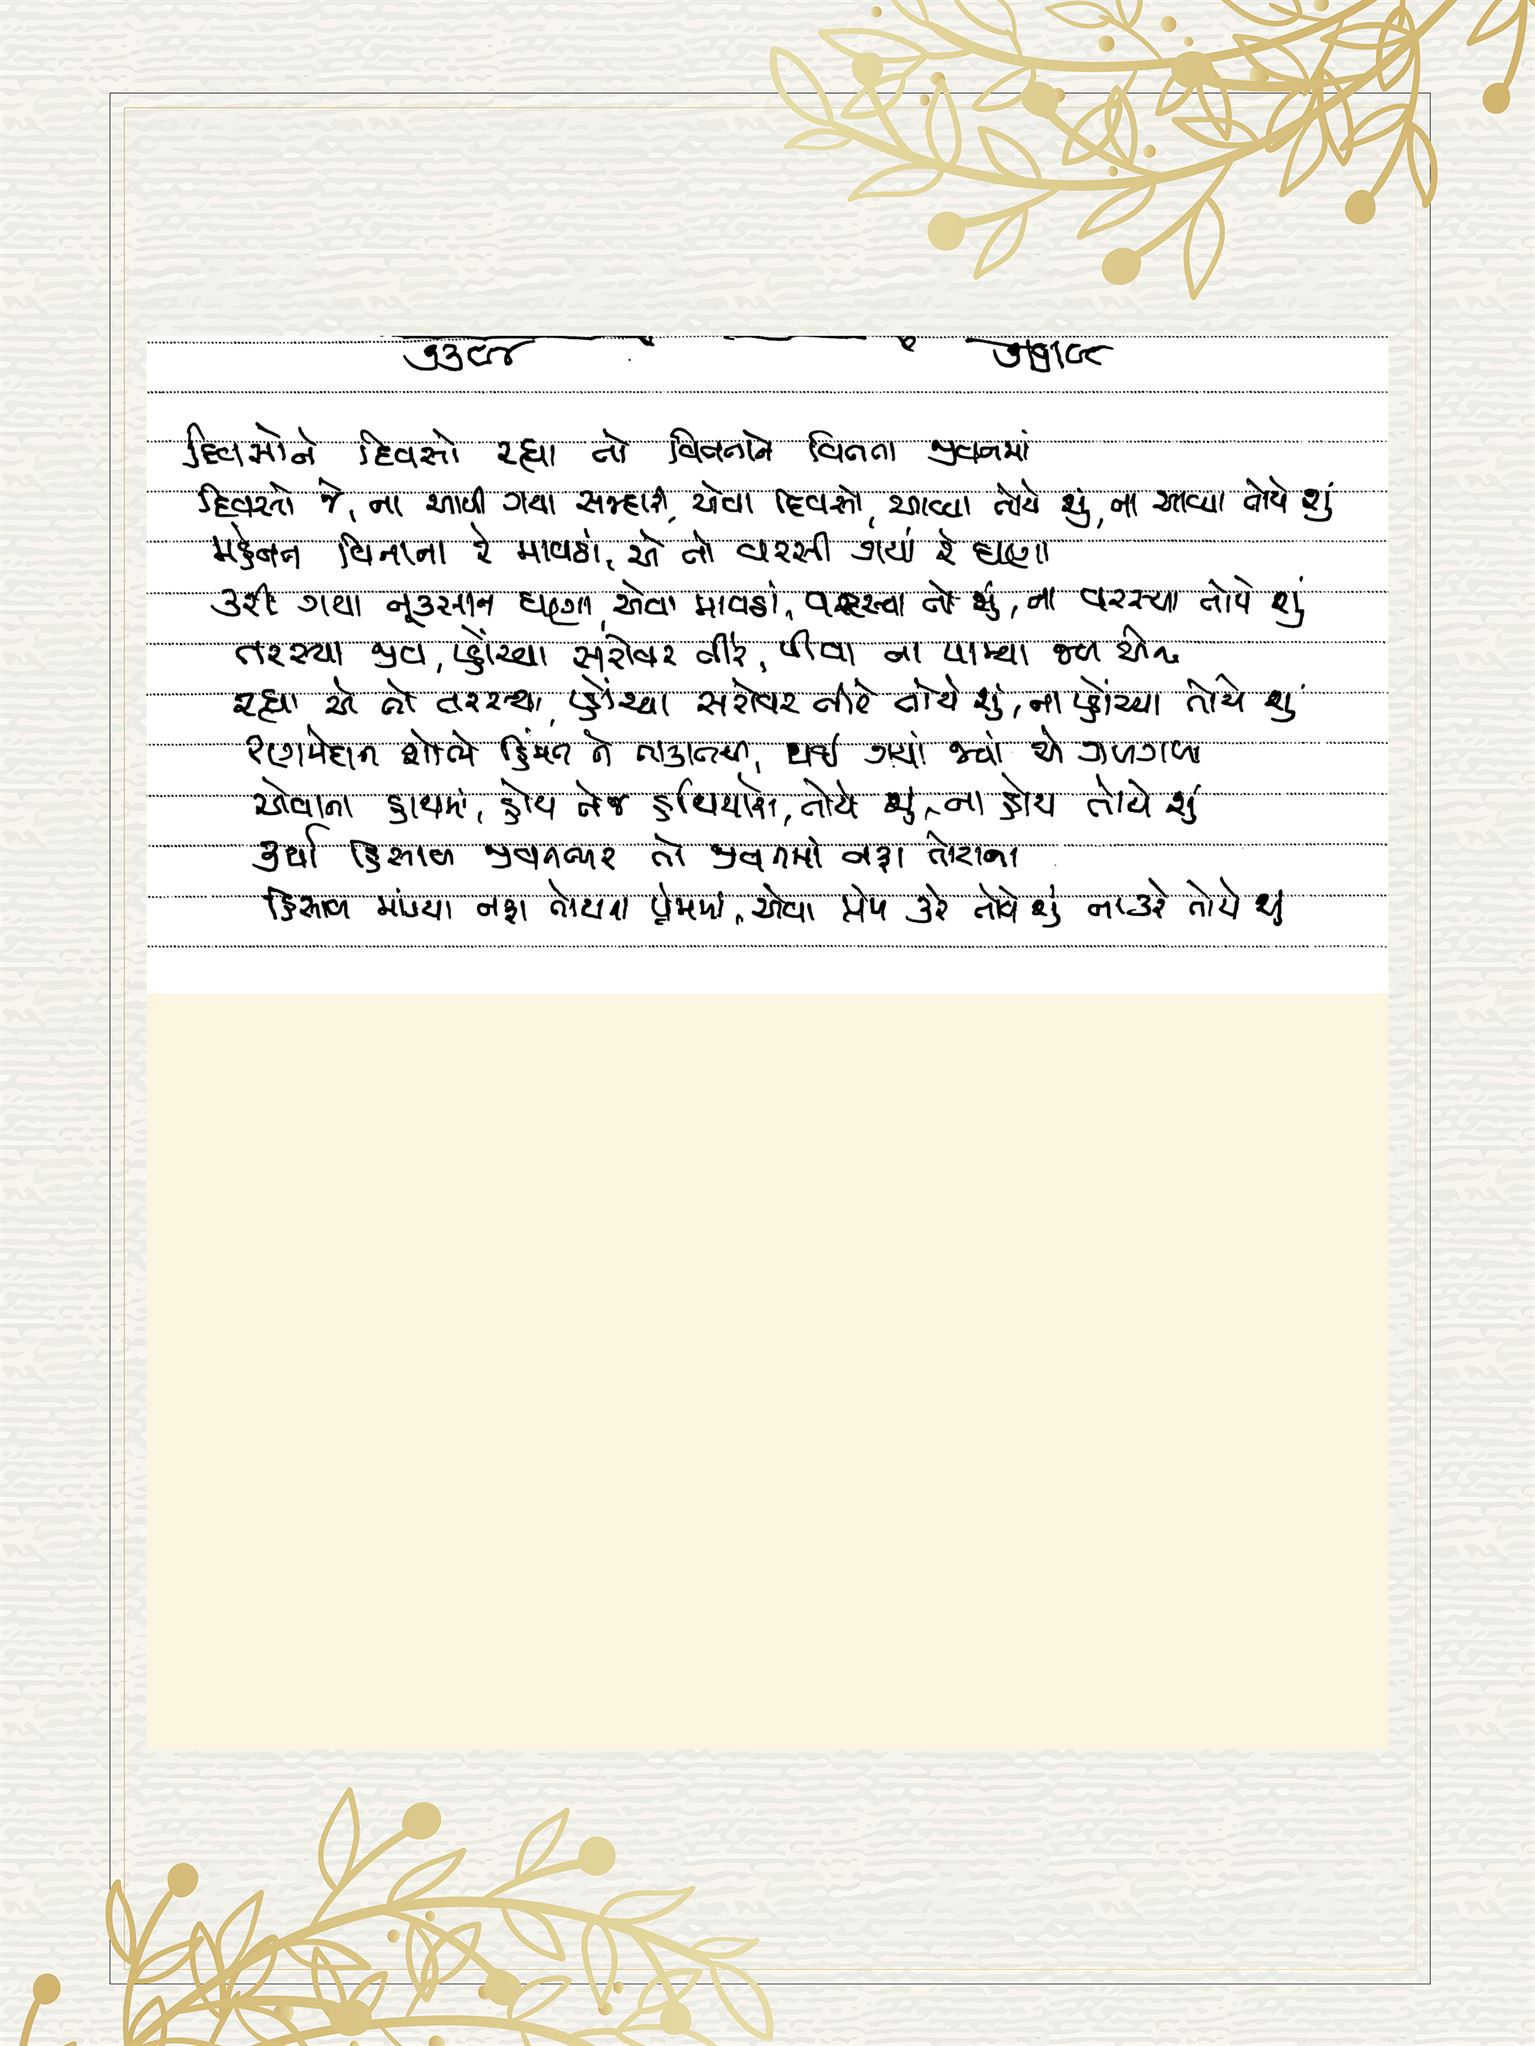 દિવસોને દિવસો રહ્યા તો વિતતાને વિતતા જીવનમાં
દિવસો જે, ના આપી ગયા સમજદારી, એવા દિવસો, આવ્યા તોયે શું, ના આવ્યા તોયે શું
મહેનત વિનાના રે માવઠાં, એ તો વરસી ગયાં રે ઘણા
કરી ગયા નૂકસાન ઘણા, એવા માવઠાં, વરસ્યા તો શું, ના વરસ્યા તોયે શું
તરસ્યા જીવ, પ્હોંચ્યા સરોવર તીરે, પીવા ના પામ્યા જળ એનું
રહ્યા એ તો તરસ્યા, પ્હોંચ્યા સરોવર તીરે તોયે શું, ના પ્હોંચ્યા તોયે શું
રણમેદાન શોભે હિંમત ને તાકાતથી, થઈ ગયાં જ્યાં એ ગળગળા
એવાના હાથમાં, હોય તેજ હથિયારો, તોયે શું, ના હોય તોયે શું
કર્યા હિસાબ જીવનભર તો જીવનમાં નફા તોટાના
હિસાબ માંડયા નફા તોટાના પ્રેમમાં, એવા પ્રેમ કરે તોયે શું ના કરે તોયે શું